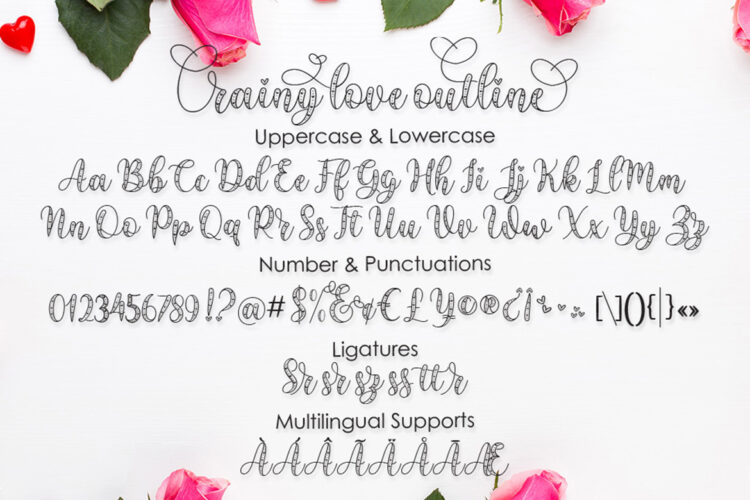 rainy love outline
Uppercase & Lowercase
Aa Bb Cc Dd Ee Ff Gg Hh Ii Jj Kk Ll Mm
Nn Oo Pp Qq Rr Ss Tt Uu Vv Ww Xx Yy Zz
Number & Punctuations
0123456789!?@#$%&€£¥©®¿¡ [\](){|}«»
Ligatures
Sr sr sz ss tt r
Multilingual Supports
ÀÁÂÃÄÅĀÆ